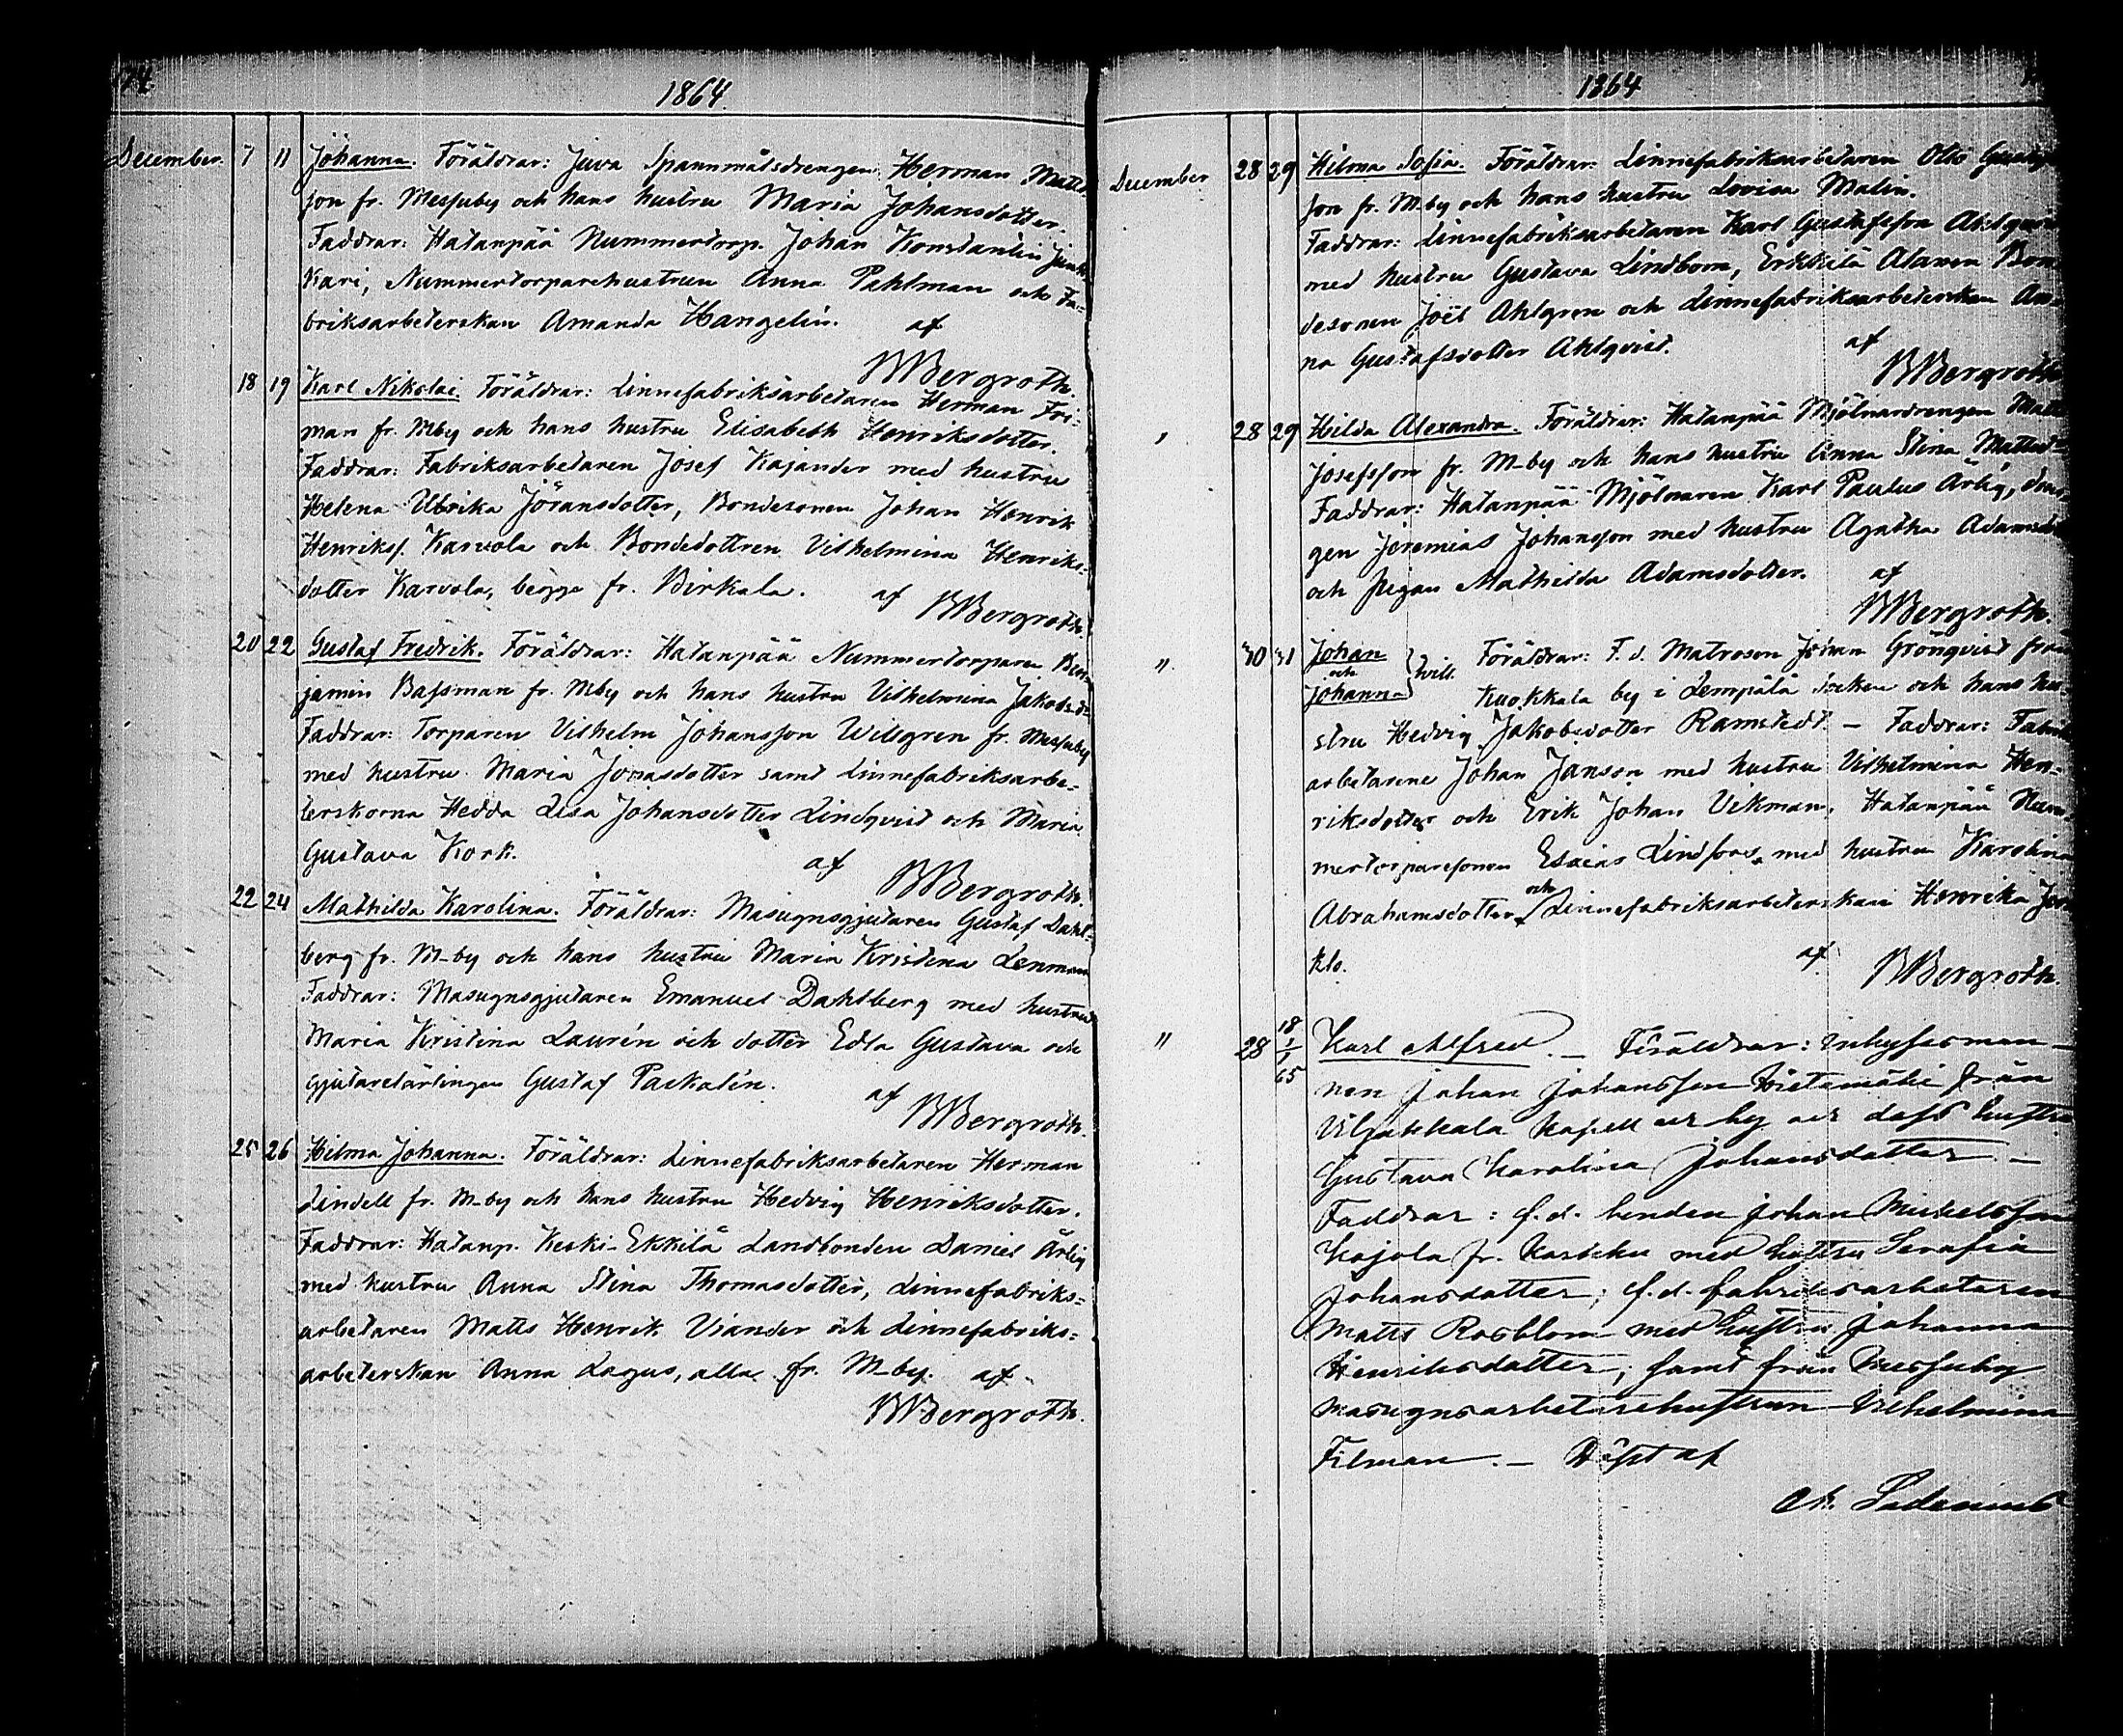 74.
1864.
December. 7 11 Johanna. Föräldrar: Juva Spannmålsdrengen Herman Matts
son fr. Messuby och hans hustru Maria Johansdotter.
Faddrar: Hatanpää Nummertorp. Johan Konstantin
Kari, Nummertorparehustrun Anna Pahlman och Fa-
briksarbeterskan Amanda Hangelin. af
BBergroth.
18 19 Karl Nikolai. Föräldrar: Linnefabriksarbetaren Herman Fri-
man fr. Mby och hans hustru Elisabeth Henriksdotter.
Faddrar: Fabriksarbetaren Josef Kajander med hustru
Helena Ulrika Jöransdotter, Bondesonen Johan Henrik
Henrikss. Karvola och Bondedottren Vilhelmina Henriks-
dotter Karvola, begge fr. Birkala. af
BBergroth.
20 22 Gustaf Fredrik. Föräldrar: Hatanpää Nummertorparen Ben-
jamin Bassman fr. Mby och hans hustru Vilhelmina Jakobsd-
Faddrar: Torparen Vilhelm Johansson Willgren fr. Messuby
med hustru Maria Jonasdotter samt Linnefabriksarbe-
terskorna Hedda Lisa Johansdotter Lindqvist och Maria
Gustava Kork. af
BBergroth.
22 24 Mathilda Karolina. Föräldrar: Masugnsgjutaren Gustaf Dahl-
berg fr. M-by och hans hustru Maria Kristina Lenman
Faddrar: Masugnsgjutaren Emanuel Dahlberg med hustru
Maria Kristina Laurén och dotter Edla Gustava och
gjutarelärlingen Gustaf Paskalin.
af
BBergroth.
25 26 Hilma Johanna. Föräldrar: Linnefabriksarbetaren Herman
Lindell fr. M-by och hans hustru Hedvig Henriksdotter.
Faddrar: Hatanp. Keski-Ekkilä Landbonden Daniel Ärlig
med hustru Anna Stina Thomasdotter, Linnefabriks-
arbetaren Matts Henrik Viander och Linnefabriks-
arbeterskan Anna Lagus, alla fr. M-by. af
BBergroth.
1864
December 28 29 Hilma Sofia. Föräldrar: Linnefabriksarbetaren Otto Gustaf
son fr. M-by och hans hustru Lovisa Malin.
Faddrar: Linnefabriksarbetaren Karl Gustafsson Ahlgren
med hustru Gustava Lindbom, Erkkilä Alanen Bon
desonen Joël Ahlgren och Linnefabriksarbeterskan An-
na Gustafsdotter Ahlqvist. af
BBergroth
" 28 29 Hilda Alexandra. Föräldrar: Hatanpää Mjölnardrengen Matts
Josefsson fr. M-by och hans hustru Anna Stina Mattsd-
Faddrar: Hatanpää Mjölnaren Karl Paulus Ärlig, dren
gen Jeremias Johansson med hustru Agatha Adamsdr
och pigan Mathilda Adamsdotter. af
BBergroth.
" 30 31 Johan
och
Johanna
tvill. Föräldrar: F.d. Matrosen Johan Grönqvist från
Kuokkala by i Lempälä socken och hans hu-
stru Hedvig Jakobsdotter Ramstedt. - Faddrar: Fabriks
arbetarene Johan Janson med hustru Vilhelmina Hen-
riksdotter och Erik Johan Vikman, Hatanpää Num-
mertorparesonen Esaias Lindfors med hustru Karolina
Abrahamsdotter och Linnefabriksarbeterskan Henrika
klo. af
BBergroth.
" 28 18/1 65 Karl Alfred. - Föräldrar: Inhysesman-
nen Johan Johansson från
Viljakkala kapell och by och dess hustru
Gustava Karolina Johansdotter -
Faddrar: f.d. bonden Johan Mickelsson
Kojola fr. med hustru Serafia
Johansdotter; f.d. fabriksarbetaren
Matts Rosblom med hustru Johanna
Henriksdotter; samt från Messuby
masugnsarbetarehustrun Vilhelmina
Filman. - Döpt af